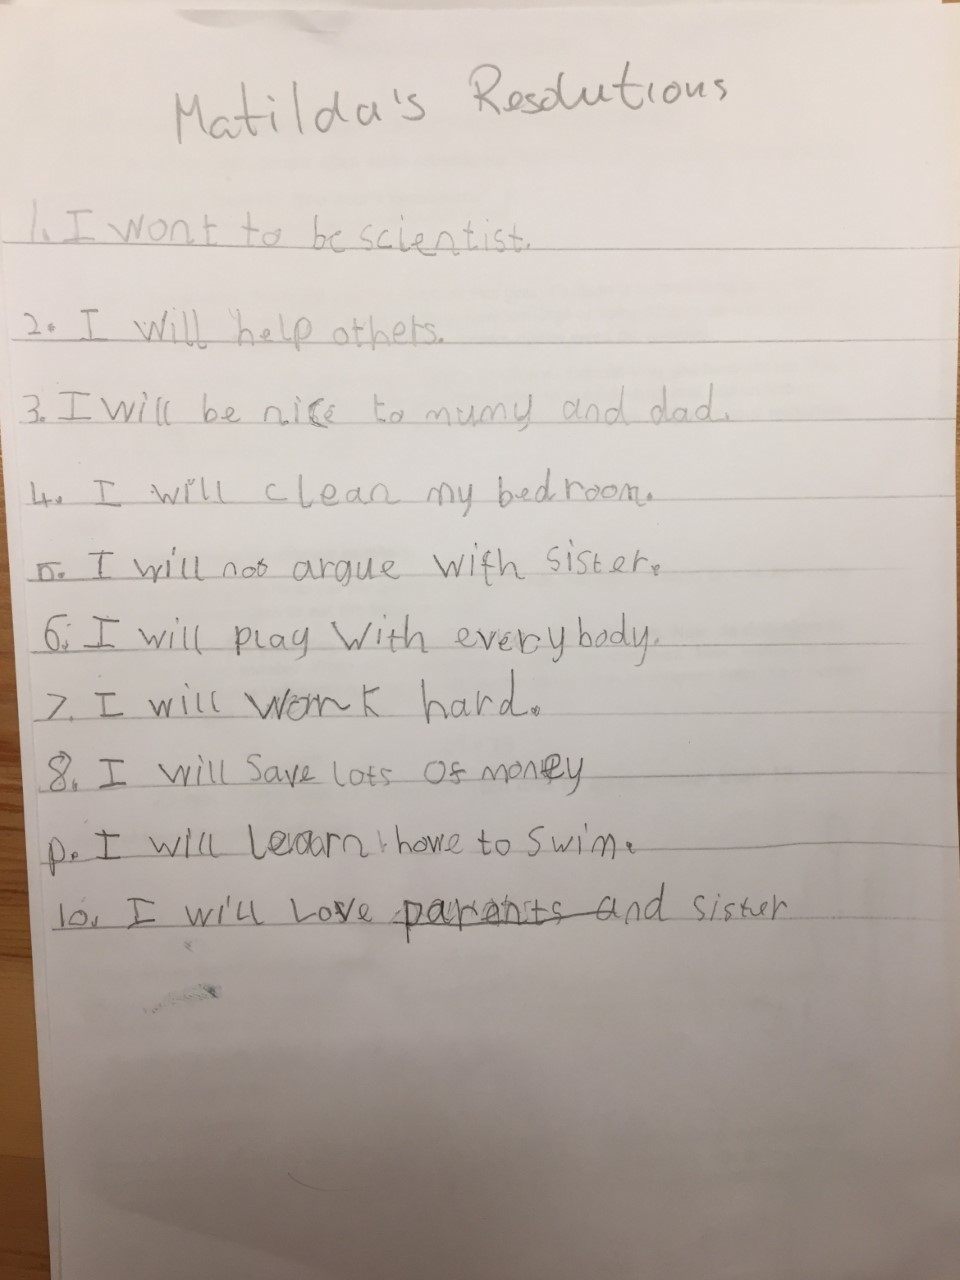 Matilda's Resolutions
1. I wont to be scientist.
2. I will help others.
3. I will be nice to mumy and dad.
4. I will clean my bedroom.
5. I will not argue with sister.
6. I will play With everybody.
7. I will work hard.
8. I will Save lots of money
9. I will learn howe to Swim.
10. I will Love parents and sister